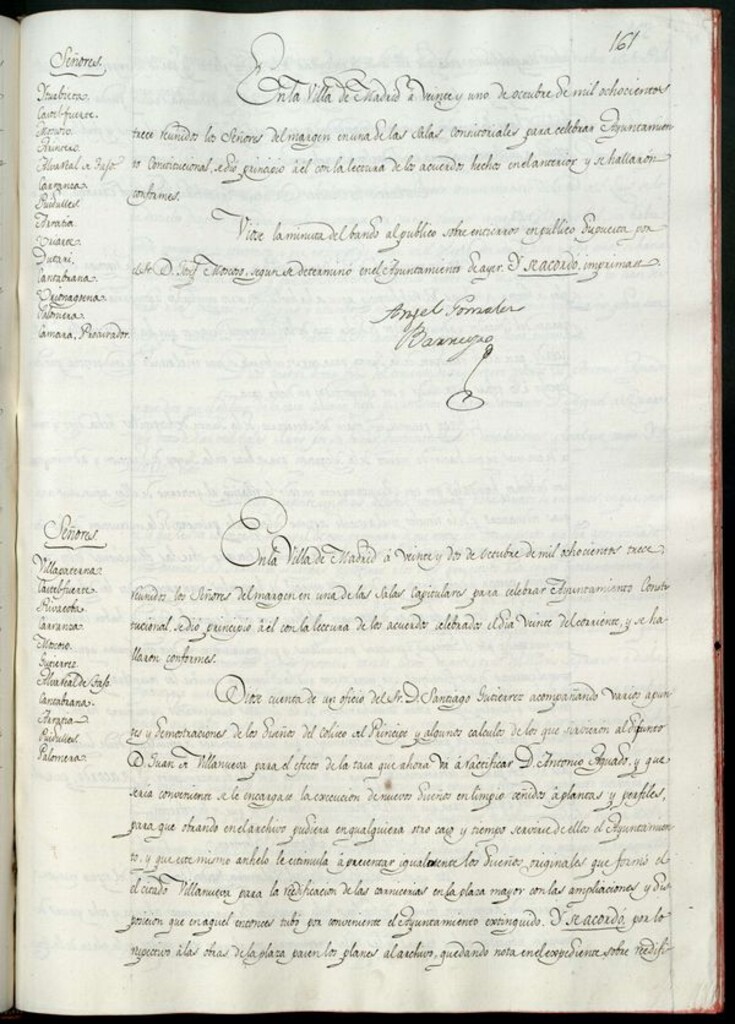 161
Señores.
Yturbieta.
Castel-fuerte.
Moscoso.
Quintero.
Alvareal de Faso.
Carranza.
Puidulles.
Arratia.
Uriarte.
Dutari.
Cantabrana.
Urionagoena.
Palomera.
Camara, Procurador.
En la Villa de Madrid à veinte y uno de octubre de mil ochocientos
trece reunidos los Señores del margen en una de las salas consistoriales para celebrar Ayuntamien-
to Constitucional, se dio principio à él con la lectura de los acuerdos hechos en el anterior, y se hallaron
conformes.
Viose la minuta del bando al publico sobre entierros en publico dispuesta por
el Sr. D. Josef Moscoso, segun se determinó en el Ayuntamiento de ayer. Y se acordó, imprimase.
Angel Gonzalez
Barreyro
Señores.
Villapaterna.
Castel-fuerte.
Rivacoba.
Carranza.
Moscoso.
Gutierrez.
Alvareal de Faso.
Cantabrana.
Arratia.
Puidulles.
Palomera.
En la Villa de Madrid à veinte y dos de octubre de mil ochocientos trece,
reunidos los Señores del margen en una de las salas capitulares para celebrar Ayuntamiento Consti-
tucional, se dió principio à él con la lectura de los acuerdos celebrados el dia veinte del corriente, y se ha-
llaron conformes.
Diose cuenta de un oficio del Sr. D. Santiago Gutierrez acompañando varios apun-
tes y demostraciones de los diseños del Coliseo del Principe y algunos calculos de los que sirvieron al difunto
D. Juan de Villanueva para el efecto de la tasa que ahora vá à ractificar D. Antonio Aguado, y que
sería conveniente se le encargase la execucion de nuevos diseños en limpio ceñidos à plantas y perfiles,
para que obrando en el archivo pudiera en qualquiera otro caso y tiempo servirse de ellos el Ayuntamien-
to, y que este mismo anhelo le estimula à presentar igualmente los diseños originales que formó el
el citado Villanueva para la reedificacion de las carnicerias en la plaza mayor con las ampliaciones y dis-
posicion que en aquel entonces tubó por conveniente el Ayuntamiento extinguido. Y se acordó, por lo
respectivo à las obras de la plaza pasen los planes al archivo, quedando nota en el expediente sobre reedifi-